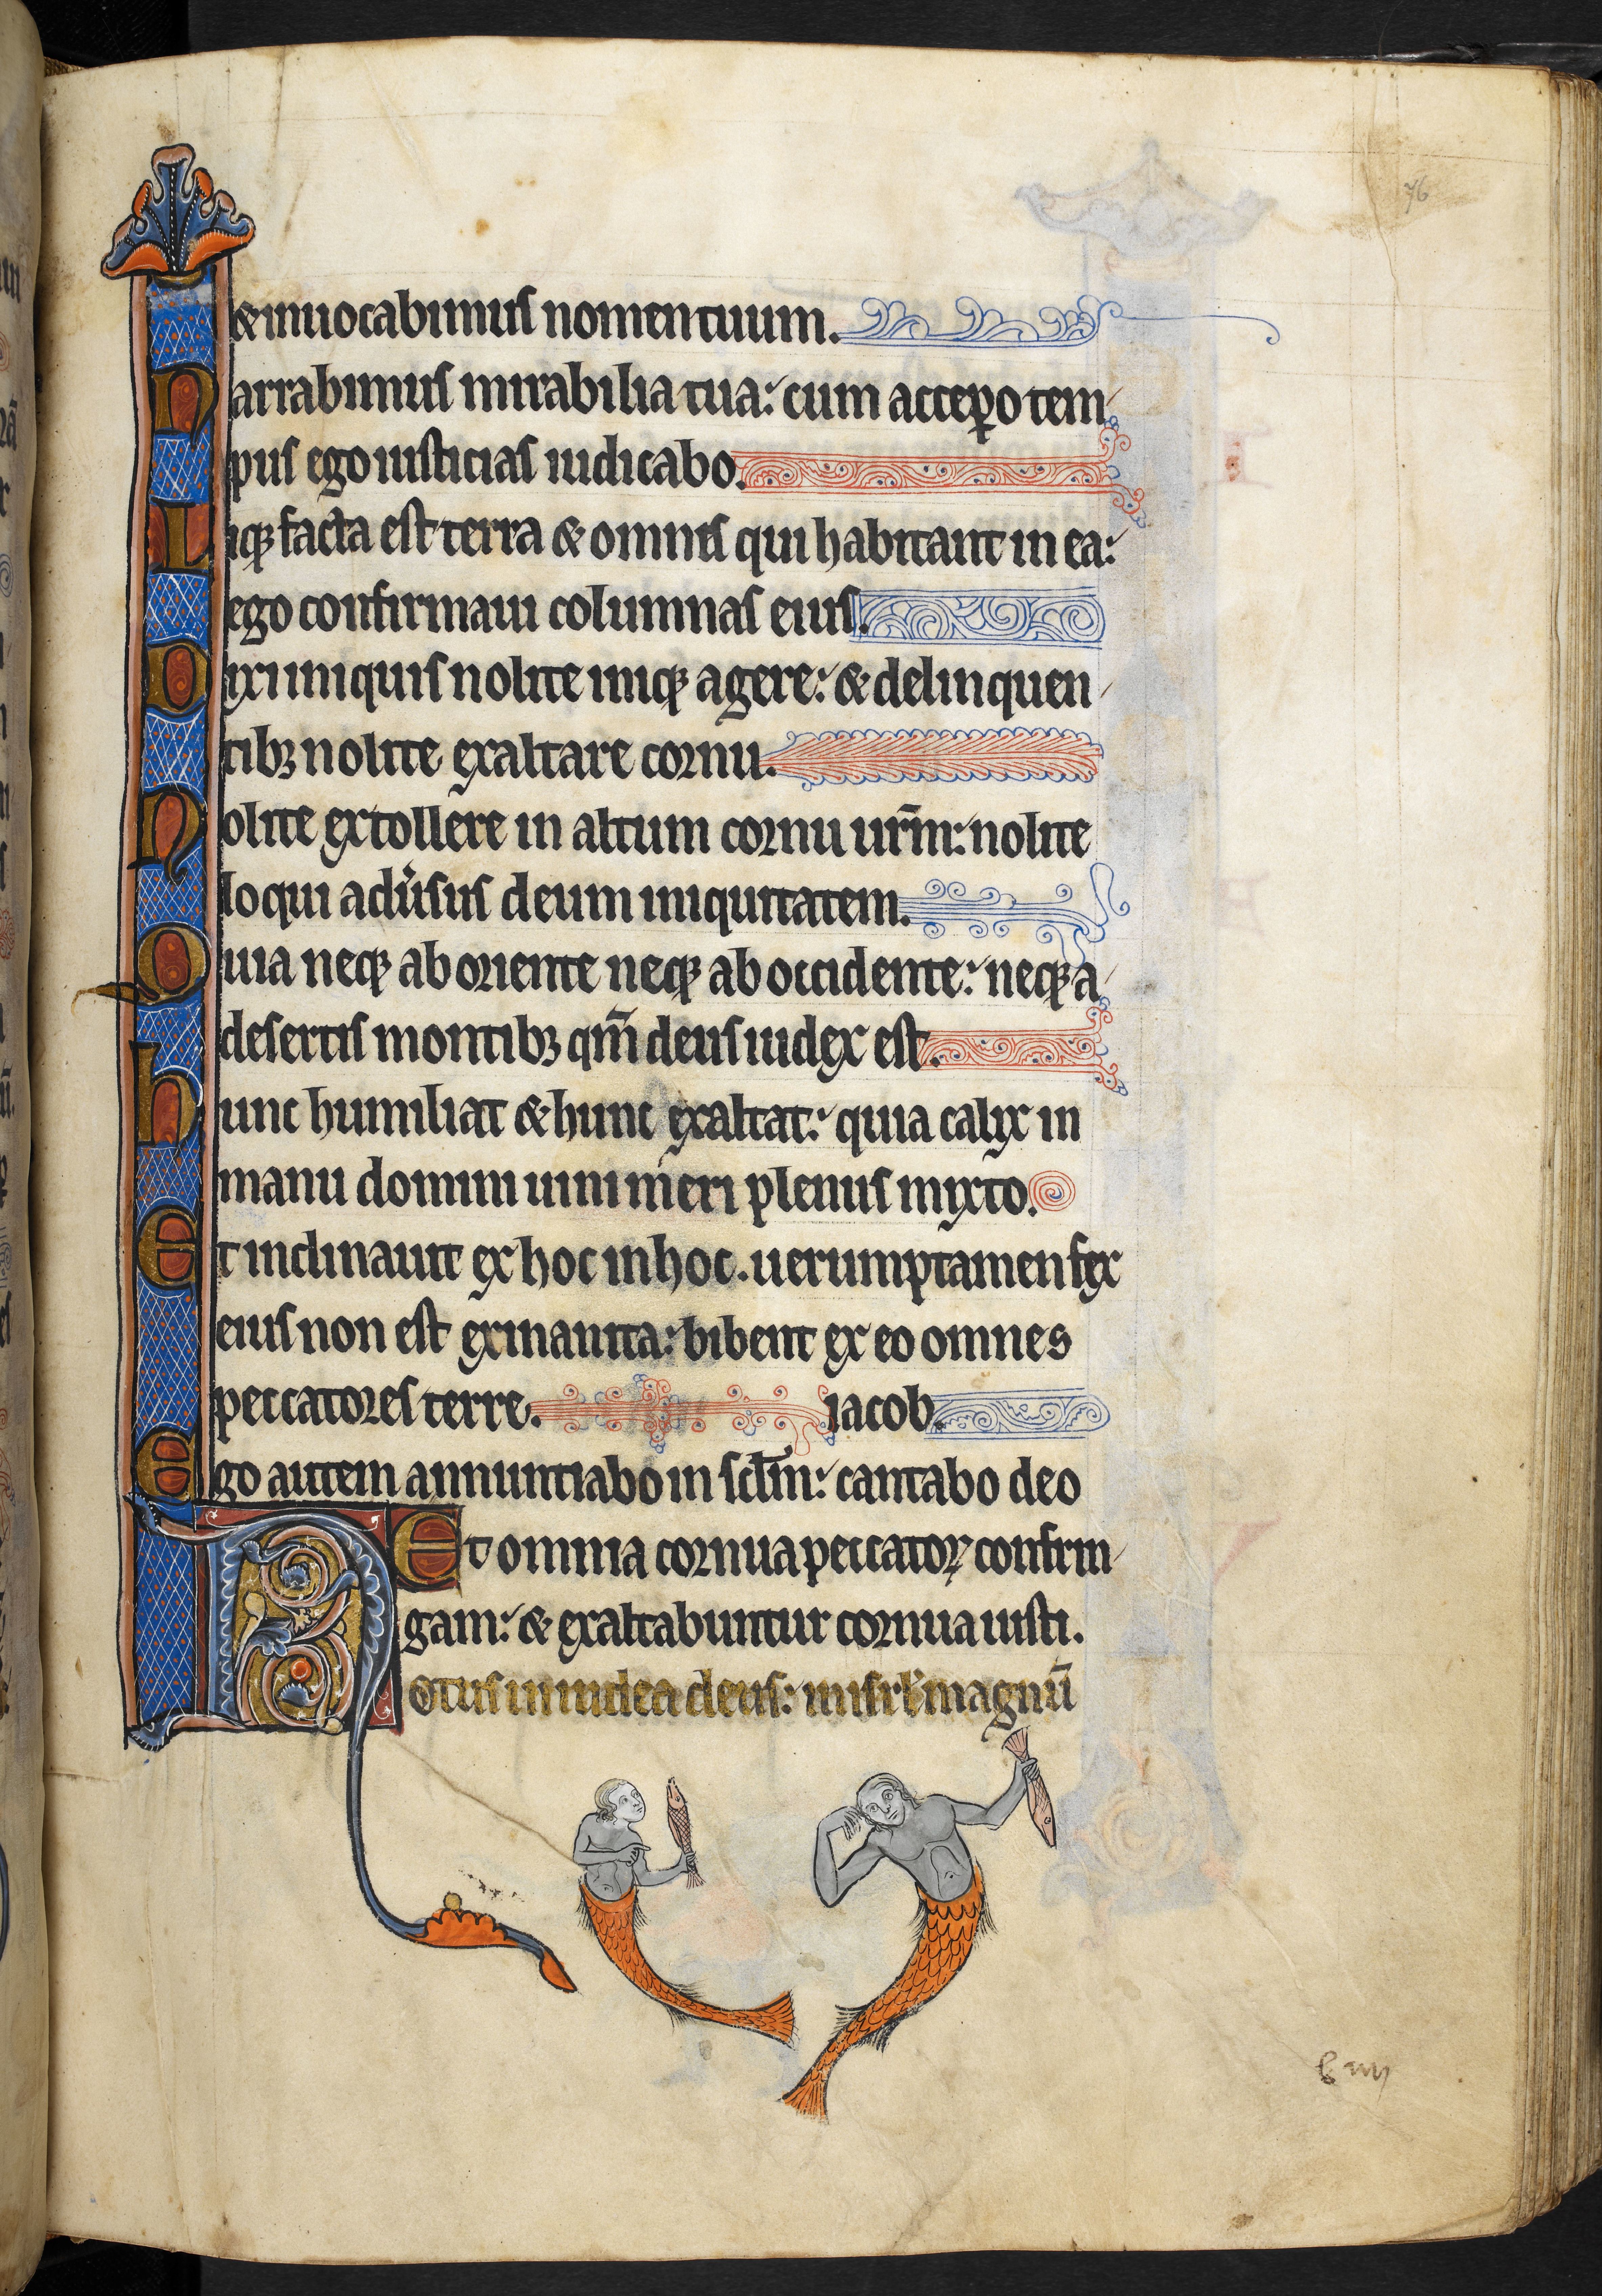 76
& inuocabimus nomen tuum.
Narrabimus mirabilia tua: cum accepo tem
pus ego iusticias iudicabo.
Liqꝫ facta est terra & omnis qui habitant in ea:
ego confirmaui columnas eius.
Dixi iniquis nolite iniqꝫ agere: & delinquen
tibꝫ nolite exaltare cornu.
Nolite extollere in altum cornu ur̄m: nolite
loqui adu'sus deum iniquitatem.
Quia neqꝫ ab oriente neqꝫ ab occidente: neqꝫ a
desertis montibꝫ qm̄ deus iudex est.
hunc humiliat & hunc exaltat: quia calix in
manu domini uini meri plenus mixto.
Et inclinauit ex hoc in hoc. uerumptamen fex
eius non est exinanita: bibent ex eo omnes
peccatores terre. iacob.
Ego autem annuntiabo in sclm̄: cantabo deo
Et omnia cornua peccatoꝝ confrin
gam: & exaltabuntur cornua iusti.
Notus in iudea deus: in isrl' magnū